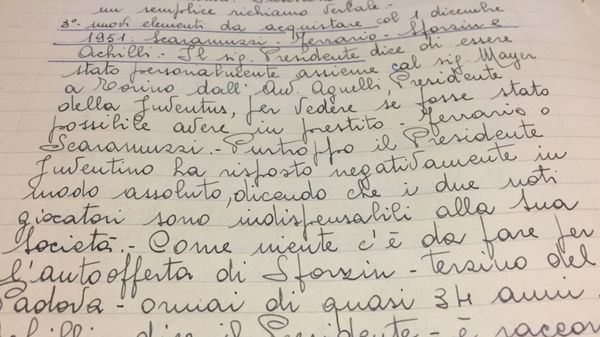 un semplice richiamo verbale.-
3°- nuovi elementi da acquistare col 1 dicembre
1951: Scaramuzzi - Ferrario - Sforzin e
Achilli.- Il sig. Presidente dice di essere
stato personalmente assieme col sig. Mayer
a Torino dall'Avv. Agnelli, Presidente
della Juventus, per vedere se fosse stato
possibile avere in prestito - Ferrario o
Scaramuzzi.- Purtroppo il Presidente
Juventino ha risposto negativamente in
modo assoluto, dicendo che i due noti
giocatori sono indispensabili alla sua
società.- Come niente c'è da fare per
l'autofferta di Sforzin - terzino del
Padova - ormai di quasi 34 anni.
dice il Presidente - è